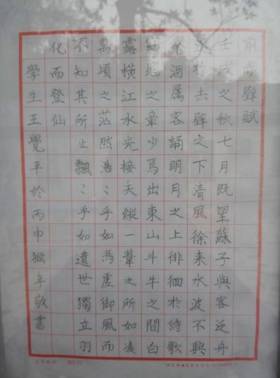 前赤壁賦
壬戌之秋七月既望蘇子與客泛舟
遊於赤壁之下清風徐來水波不興
舉酒屬客誦明月之上徘徊於詩歌
窈窕之章少焉出東山斗牛之間白
露橫江水光接天縱一葦之所如凌
萬頃之茫然浩〻乎如馮虛御風而
不知其所止飄〻乎如遺世獨立羽
化而登仙
學生王覺平於丙申猴年敬書